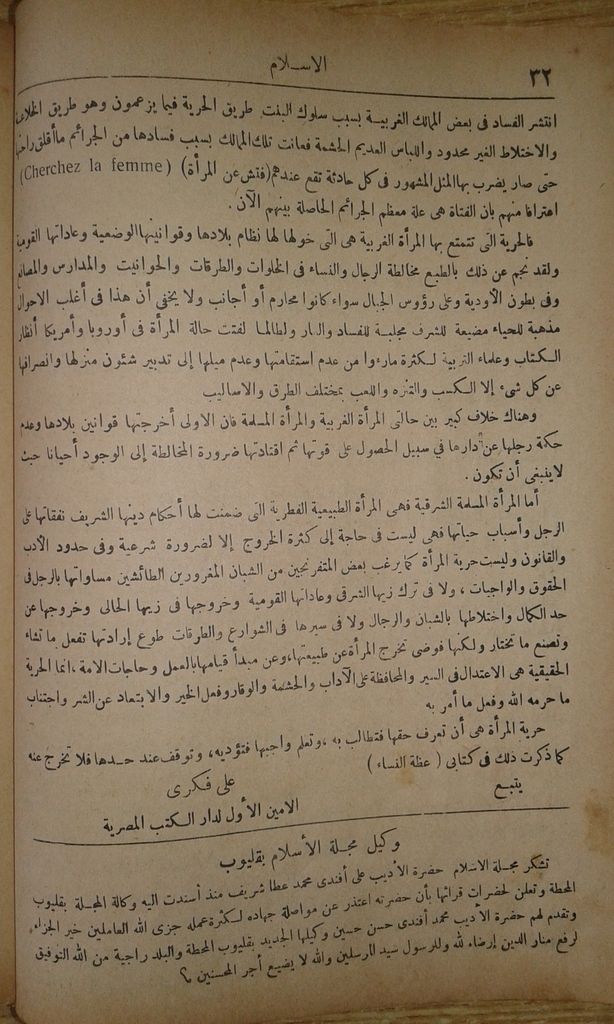 ٣٢
الاسـلام
انتشر الفساد فى بعض الممالك الغربيـة بسبب سلوك البنت طريق الحرية فيما يزعمون وهو طريق الخلاعة
والاختلاط الغير محدود واللباس العديم الحشمة فعانت تلك الممالك بسبب فسادها من الجرائم ماأقلق راحتها
حتى صار يضرب بها المثل المشهور فى كل حادثة تقع عندهم (فتش عن المرأة) (Cherchez la femme)
اعترافا منهم بان الفتاة هى علة معظم الجرائم الحاصلة بينهم الآن .
فالحرية التى تتمتع بها المرأة الغربية هى التى خولها لها نظام بلادها وقوانينها الوضعية وعاداتها القومية
ولقد نجم عن ذلك بالطبع مخالطة الرجال والنساء فى الخلوات والطرقات والحوانيت والمدارس والمصانع
وفى بطون الأودية وعلى رؤوس الجبال سواء كانوا محارم أو أجانب ولا يخفى أن هذا فى أغلب الاحوال
مذهبة للحياء مضيعة للشرف مجلبـة للفساد والعار ولطالمـا لفتت حالة المرأة فى أوروبا وأمريكا أنظار
الـكـتاب وعلماء التربية لـكثرة مارءوا من عدم استقامتها وعدم ميلها إلى تدبير شئون منزلها وانصرافها
عن كل شىء إلا الكسب والتنزه واللعب بمختلف الطرق والاساليب
وهناك خلاف كبير بين حالتى المرأة الغربية والمرأة المسلمة فان الاولى أخرجتها قوانين بلادها وعدم
حكمة رجلها عن دارها في سبيل الحصول على قوتها ثم اقتادتها ضرورة المخالطة إلى الوجود أحيانا حيث
لاينبغى أن تكون .
أما المرأة المسلمة الشرقية فهى المرأة الطبيعية الفطرية التى ضمنت لها أحكام دينها الشريف نفقاتها على
الرجل وأسباب حياتها فهى ليست فى حاجة إلى كثرة الخروج إلا لضرورة شرعية وفى حدود الأدب
والقانون وليست حرية المرأة كما يرغب بعض المتفرنجين من الشبان المغرورين الطائشين مساواتها بالرجل فى
الحقوق والواجبات ، ولا فى ترك زيها الشرقى وعاداتها القومية وخروجها فى زيها الحالى وخروجها عن
حد الكمال واختلاطها بالشبان والرجال ولا فى سيرها فى الشوارع والطرقات طوع إرادتها تفعل ما تشاء
وتصنع ما تختار ولكنها فوضى تخرج المرأة عن طبيعتها، وعن مبدأ قيامها بالعمل وحاجات الامة ، انما الحرية
الحقيقية هى الاعتدال فى السير والمحافظة على الآداب والحشمة والوقار وفعل الخير والابتعاد عن الشر واجتناب
ما حرمه الله وفعل ما أمر به
حرية المرأة هى أن تعرف حقها فتطالب به ، وتعلم واجبها فتؤديه ، وتوقف عند حـدها فلا تخرج عنه
كما ذكرت ذلك فى كتابى ( عظة النساء )
يتبـع
على فـكـرى
الامين الأول لدار الـكتب المصرية
وكيل مجـلة الأسلام بقليوب
تشكر مجـلة الاسلام حضرة الأديب على أفندى محمد عطا شريف منذ أسندت اليه وكالة المجـلة بقليوب
المحطة وتعلن لحضرات قرائها بأن حضرته اعتذر عن مواصلة جهاده لـكثرة عمله جزى الله العاملين خير الجزاء
وتقدم لهم حضرة الأديب محمد أفندى حسن حسين وكيلها الجديد بقليوب المحطة والبلد راجية من الله التوفيق
لرفع منار الدين إرضاء لله وللرسول سيد المرسلين والله لا يضيع أجر المحسنين ؟